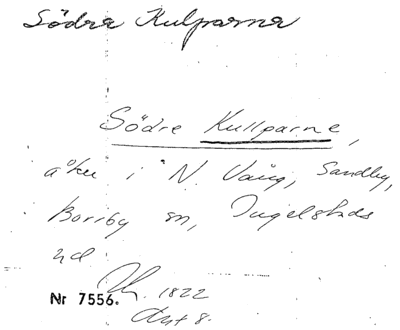 Södra Kulparna
Södre Kullparne,
åker i N. Vång, Sandby,
Borrby sn, Ingelstads
hd
Nr 7556. 1822
Akt 8.